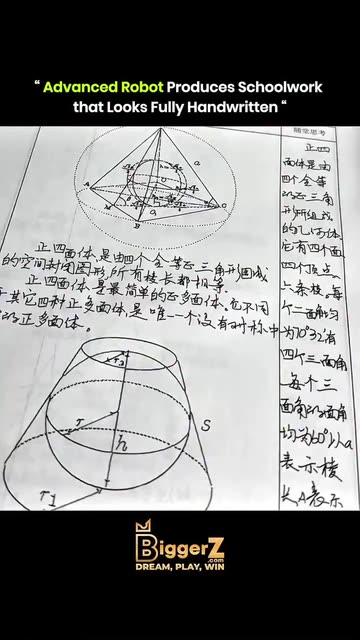 “ Advanced Robot Produces Schoolwork
that Looks Fully Handwritten “
随堂思考
a
A
B
C
正四面体,是由四个全等正三角形围成
的空间封闭图形,所有棱长都相等.
正四面体是最简单的正多面体.它不同
其它四种正多面体,是唯一个没有对称中
的正多面体。
r2
r
S
h
r1
正四
面体是由
四个全等
的正三角
形所组成
的几何体,
它有四个面
四个顶点
六条棱。每
个二面角均
为70°32'有
四个三面角
每个三
面角的面角
均为60°以a
表示棱
长A表示
BiggerZ
.com
DREAM, PLAY, WIN